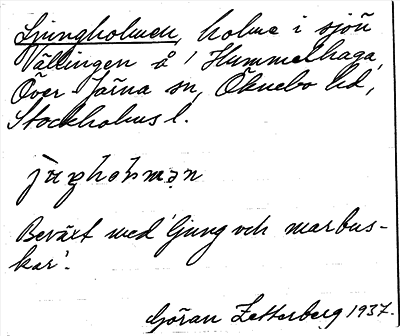 Ljungholmen, holme i sjön
Vällingen å 1 Hummelhaga,
Över Järna sn, Öknebo hd,
Stockholms l.
Beväxt med 'ljung och marbus-
kar'.
Göran Zetterberg 1937.